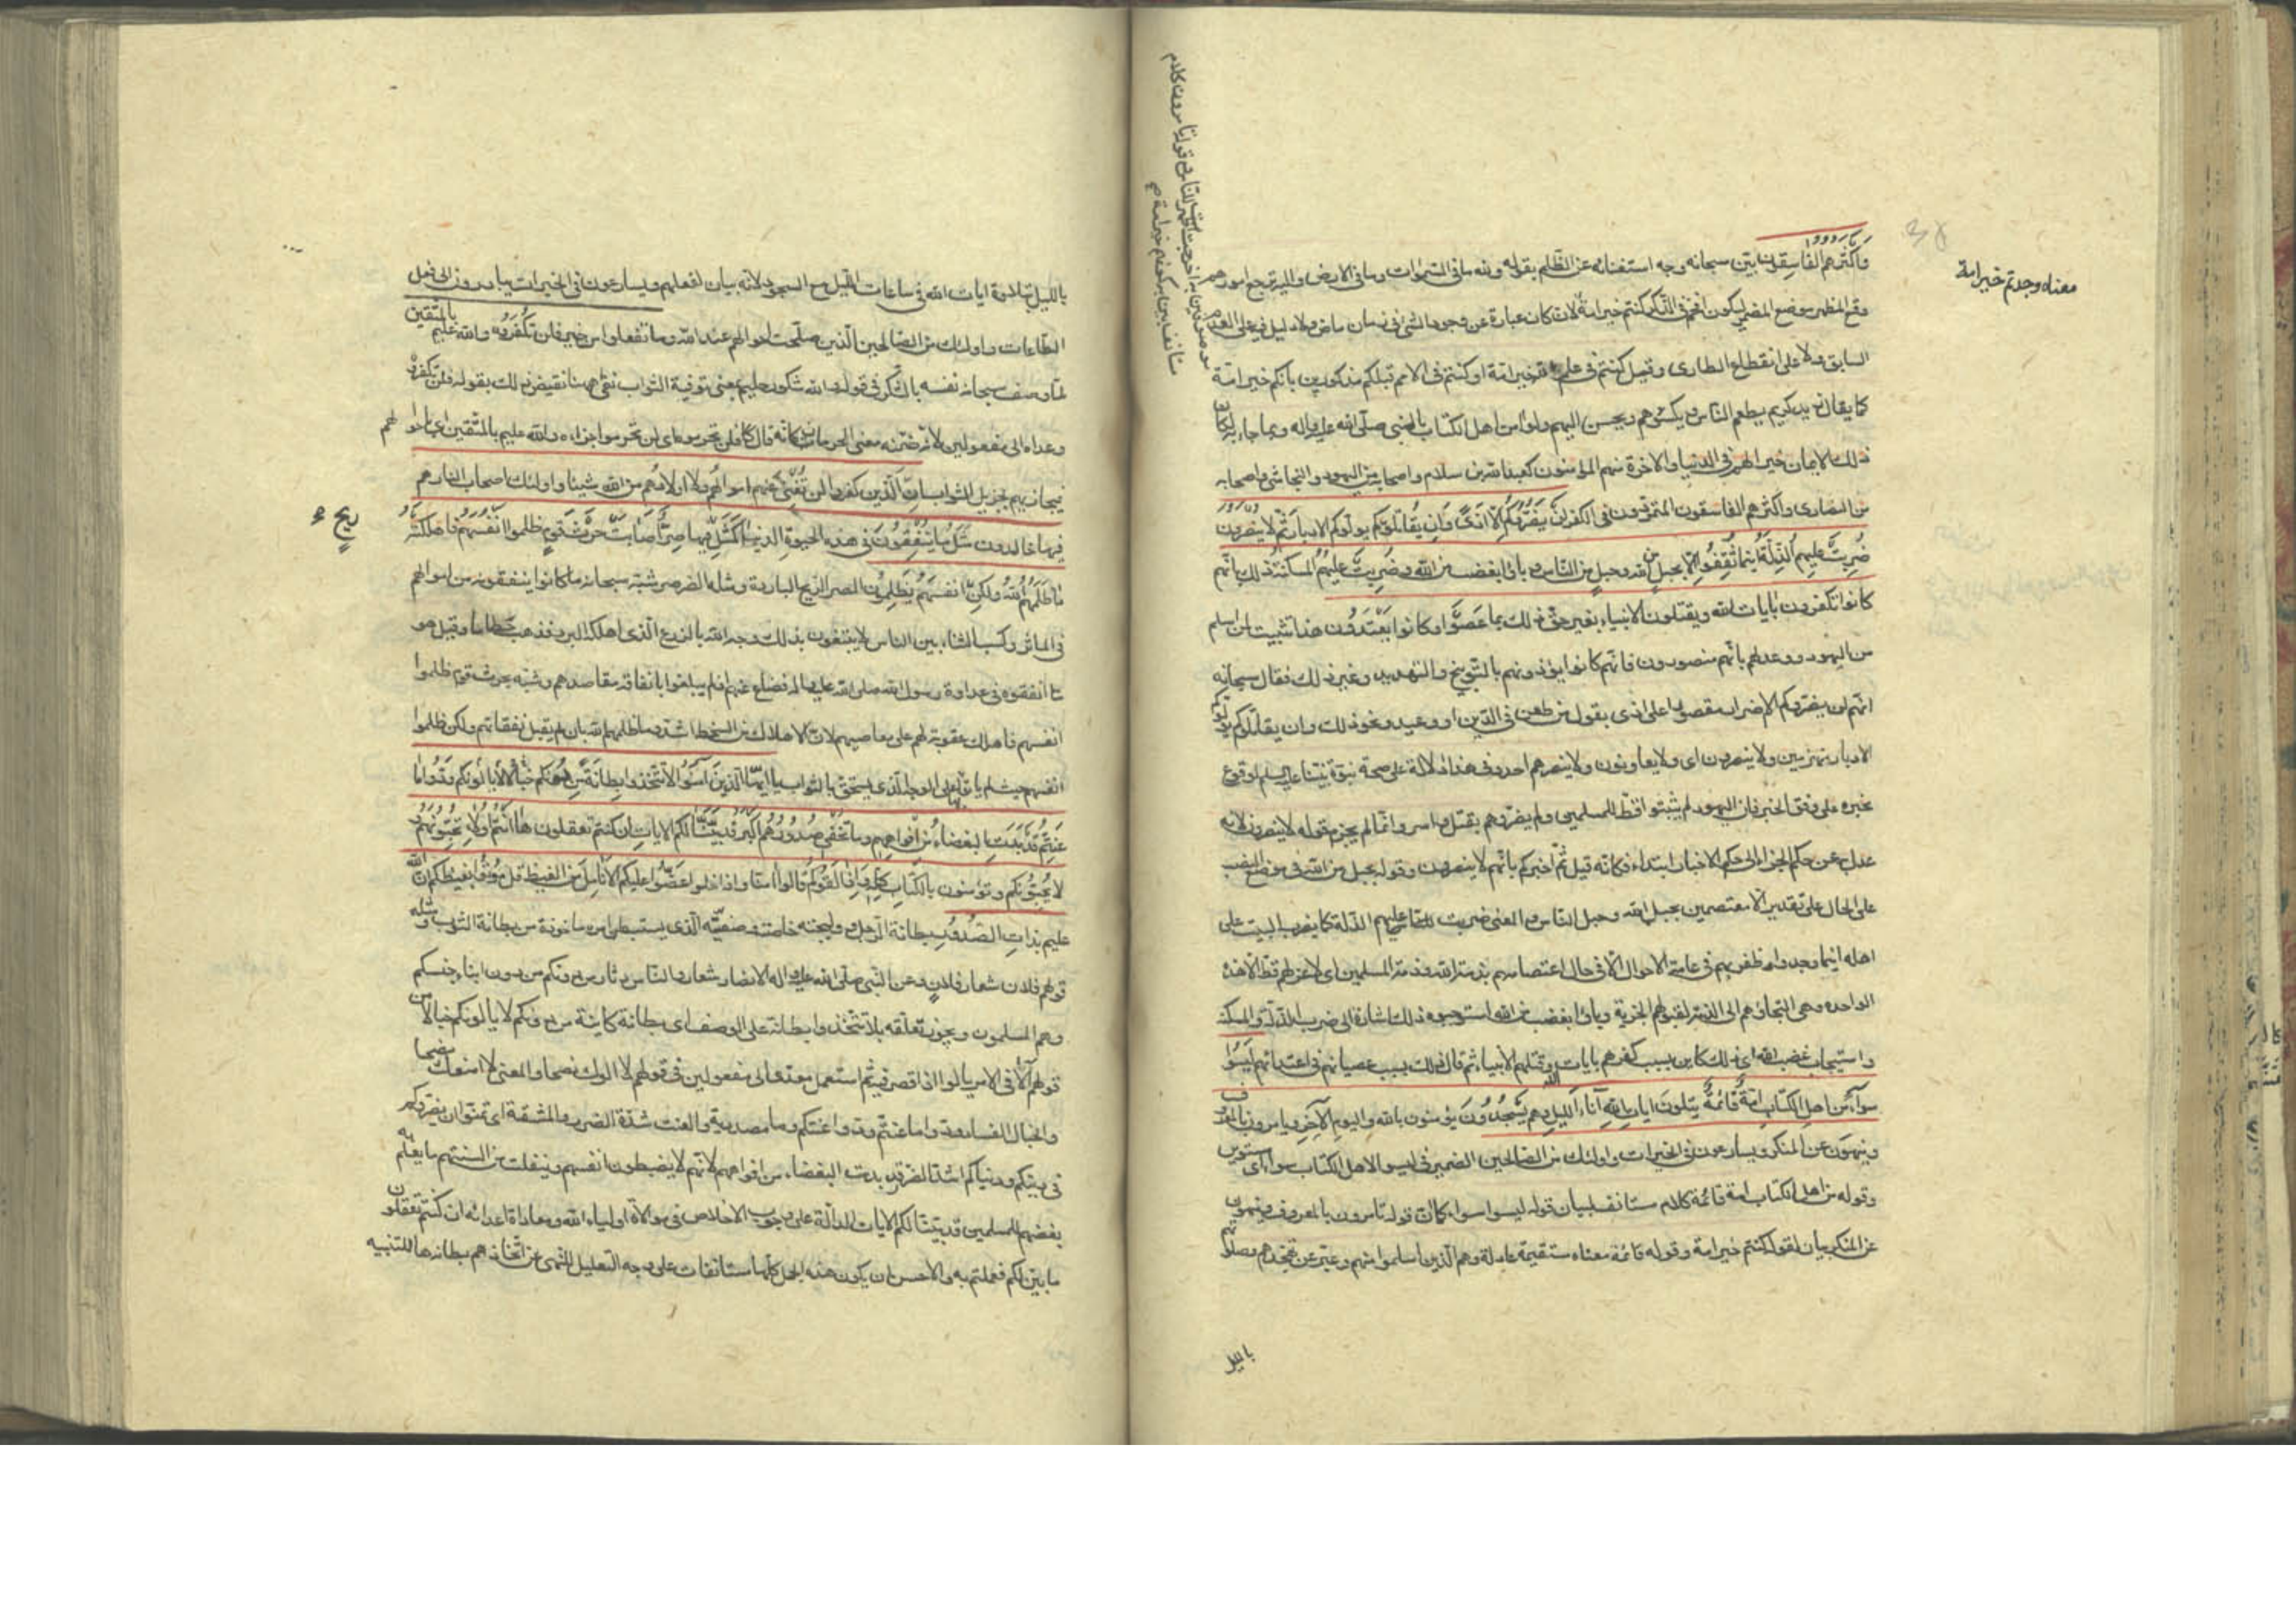 واكثرهم الفاسقون بين سبحانه وجه استغنائه عن الظلم بقوله ولله ما في السموات وما في الارض واليه ترجع امورهم
وقع المظهر موضع المضمر ليكون افخم في الذكر كنتم خير امة لان كان عبارة عن وجود الشئ في زمان ماض ولا دليل فيه على العدم
السابق ولا على انقطاع الطارى وقيل كنتم في علم الله خير امة او كنتم في الامم قبلكم مذكورين بانكم خير امة
كما يقال زيد كريم يطعم الناس ويكسوهم ويحسن اليهم ولو امن اهل الكتاب بالنبي صلى الله عليه واله وبما جاء به لكان
ذلك الايمان خيرا لهم في الدنيا والاخرة منهم المؤمنون كعبد الله بن سلام واصحابه من اليهود والنجاشي واصحابه
من النصارى واكثرهم الفاسقون المتمردون في الكفر لن يضروكم الا اذى وان يقاتلوكم يولوكم الادبار ثم لا ينصرون
ضربت عليهم الذلة اينما ثقفوا الا بحبل من الله وحبل من الناس وباؤا بغضب من الله وضربت عليهم المسكنة ذلك بانهم
كانوا يكفرون بايات الله ويقتلون الانبياء بغير حق ذلك بما عصوا وكانوا يعتدون هذا تثبيت لمن اسلم
من اليهود ووعد لهم بانهم منصورون فانهم كانوا يؤذونهم بالتوبيخ والتهديد وغير ذلك فقال سبحانه
انهم لن يضروكم الا ضررا مقصورا على اذى بقول من طعن في الدين او وعيد ونحو ذلك وان يقاتلوكم يولوكم
الادبار منهزمين ولا ينصرون اى ولا يعاونون ولا ينصرهم احد وفي هذا دلالة على صحة نبوة نبينا عليه السلم لوقوع
مخبره على وفق الخبر فان اليهود لم يثبتوا قط للمسلمين ولم يضروهم بقتل واسر وانما لم يجزم قوله لا ينصرون لانه
عدل عن حكم الجزاء الى حكم الاخبار ابتداء فكانه قيل ثم اخبركم بانهم لا ينصرون وقوله بحبل من الله في موضع النصب
على الحال على تقدير الا معتصمين بحبل الله وحبل الناس والمعنى ضربت عليهم الذلة كما يضرب البيت على
اهله اينما وجدوا وظفر بهم في عامة الاحوال الا في حال اعتصامهم بذمة الله وذمة المسلمين اى لا عز لهم قط الا هذه
الواحدة وهي التجاؤهم الى الذمة لقبولهم الجزية وباؤا بغضب من الله استوجبوه ذلك اشارة الى ضرب الذلة والمسكنة
واستيجاب غضب الله اى ذلك كاين بسبب كفرهم بايات الله وقتلهم الانبياء ثم قال ذلك بسبب عصيانهم واعتدائهم ليسوا
سواء من اهل الكتاب امة قائمة يتلون ايات الله اناء الليل وهم يسجدون يؤمنون بالله واليوم الآخر ويامرون بالمعروف
وينهون عن المنكر ويسارعون في الخيرات واولئك من الصالحين الضمير في ليسوا لاهل الكتاب سواء اى مستوين
وقوله من اهل الكتاب امة قائمة كلام مستانف لبيان قوله ليسوا سواء كما ان قوله تامرون بالمعروف وتنهون
عن المنكر بيان لقوله كنتم خير امة وقوله قائمة معناه مستقيمة عادلة وهم الذين اسلموا منهم وعبر عن تهجدهم وصلوتهم
بالليل
معناه وجدتم خير امة
بالليل بتلاوة ايات الله في ساعات الليل مع السجود لانه بيان لفعلهم ويسارعون في الخيرات يبادرون الى فعل
الطاعات واولئك من الصالحين الذين صلحت احوالهم عند الله وما تفعلوا من خير فلن تكفروه والله عليم بالمتقين
لما وصف سبحانه نفسه بالشكر في قوله والله شكور حليم بمعنى توفية الثواب نفى ههنا نقيض ذلك بقوله فلن تكفروه
وعداه الى مفعولين لانه ضمنه معنى الحرمان فكانه قال فلن تحرموه اى لن تحرموا جزاءه والله عليم بالمتقين اى باحوالهم
فيجازيهم بجزيل الثواب ان الذين كفروا لن تغني عنهم اموالهم ولا اولادهم من الله شيئا واولئك اصحاب النار هم
فيها خالدون مثل ما ينفقون في هذه الحيوة الدنيا كمثل ريح فيها صر اصابت حرث قوم ظلموا انفسهم فاهلكته
ريح
وما ظلمهم الله ولكن انفسهم يظلمون الصر الريح الباردة ومثله الصرصر شبه سبحانه ما كانوا ينفقونه من اموالهم
في المآثر وكسب الثناء بين الناس لا يبتغون بذلك وجه الله بالزرع الذي اهلكه البرد فذهب حطاما وقيل هو
ما انفقوه في عداوة رسول الله صلى الله عليه واله فضاع عنهم اذ لم يبلغوا بانفاقه مقاصدهم وشبه بحرث قوم ظلموا
انفسهم فاهلك عقوبة لهم على معاصيهم لان الاهلاك من السخط اشد وما ظلمهم الله بان لم يقبل نفقاتهم ولكن ظلموا
انفسهم حيث لم ياتوا بها على الوجه الذي يستحق به الثواب يا ايها الذين آمنوا لا تتخذوا بطانة من دونكم لا يالونكم خبالا ودوا ما
عنتم قد بدت البغضاء من افواههم وما تخفي صدورهم اكبر قد بينا لكم الايات ان كنتم تعقلون ها انتم اولاء تحبونهم و
لا يحبونكم وتؤمنون بالكتاب كله واذا لقوكم قالوا امنا واذا خلوا عضوا عليكم الانامل من الغيظ قل موتوا بغيظكم ان الله
عليم بذات الصدور بطانة الرجل ووليجته خاصته وصفيه الذي يستبطن امره ماخوذة من بطانة الثوب ومثله
قولهم فلان شعار فلان وعن النبي صلى الله عليه واله الانصار شعار والناس دثار من دونكم من دون ابناء جنسكم
وهم المسلمون ويجوز تعلقه بلا تتخذوا وبطانة على الوصف اى بطانة كاينة من دونكم لا يالونكم خبالا من
قولهم الا في الامر يالو اذا قصر فيه ثم استعمل معدى الى مفعولين في قولهم لا الوك نصحا والمعنى لا امنعك نصحا
والخبال الفساد ودوا ما عنتم ودوا عنتكم وما مصدرية والعنت شدة الضرر والمشقة اى تمنوا ان يضروكم
في دينكم ودنياكم اشد الضرر قد بدت البغضاء من افواههم لانهم لا يضبطون انفسهم وينفلت من السنتهم ما يعلم به
بغضهم للمسلمين قد بينا لكم الايات الدالة على وجوب الاخلاص في موالاة اولياء الله ومعاداة اعدائه ان كنتم تعقلون
ما بين لكم فعملتم به والاحسن ان يكون هذه الجمل كلها مستانفات على وجه التعليل للنهى عن اتخاذهم بطانة ها للتنبيه